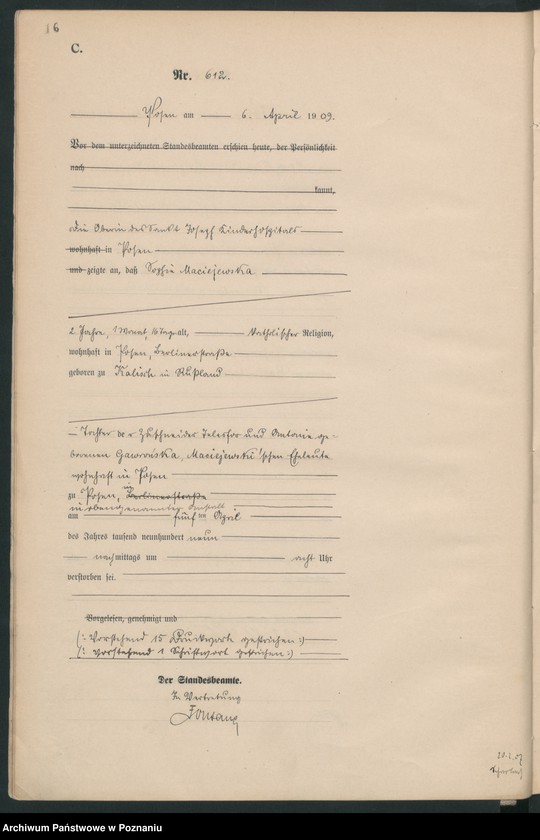 6
C.
Nr. 612.
Posen am 6. April 1909.
Vor dem unterzeichneten Standesbeamten erschien heute, der Persönlichkeit
nach
kannt,
die Oberin des Sankt Joseph Kinderhospitals
wohnhaft in Posen
und zeigte an, daß Sophie Maciejewska
2 Jahre, 1 Monat, alt, katholischer Religion,
wohnhaft in Posen, Berlinerstraße
geboren zu Kalisch in Rußland
Tochter der Zuschneider Telesfor und Antonie ge-
borenen Gaworska, Maciejewski'schen Eheleute
wohnhaft in Posen
zu Posen, Berlinerstraße
in obengenannter Anstalt
am fünften April
des Jahres tausend neunhundert neun
nachmittags um acht Uhr
verstorben sei.
Vorgelesen, genehmigt und
(:Vorstehend 15 Druckworte gestrichen:)
(:Vorstehend 1 Schriftwort gestrichen:)
Der Standesbeamte.
In Vertretung
Fontane
Archiwum Państwowe w Poznaniu